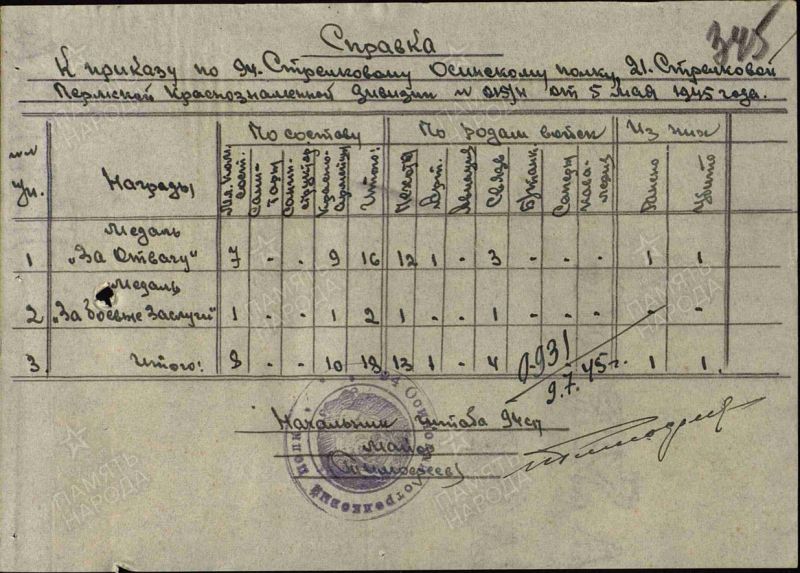 345
Справка
К приказу по 94. Стрелковому Осинскому полку, 21. Стрелковой
Пермской Краснознаменной дивизии № 019/н от 5 мая 1945 года.
№№ Уп. Награды По составу По родам войск Из них
Мл. ком. сост. Сани- тары Санин- структор Красно- армейцы Итого: Пехота Арт. Авиация Связь Бр.танк. Саперы Кава- лерия Ранено Убито
Медаль
1 „За Отвагу" 7 - - 9 16 12 1 - 3 - - - 1 1
Медаль
2 „За боевые заслуги" 1 - - 1 2 1 - - 1 - - - - -
3. Итого: 8 10 18 13 1 - 4 1 1.
0-931
9.7.45г.
Начальник штаба 94 сп
Майор
(Тимофеев)
ПАМЯТЬ НАРОДА